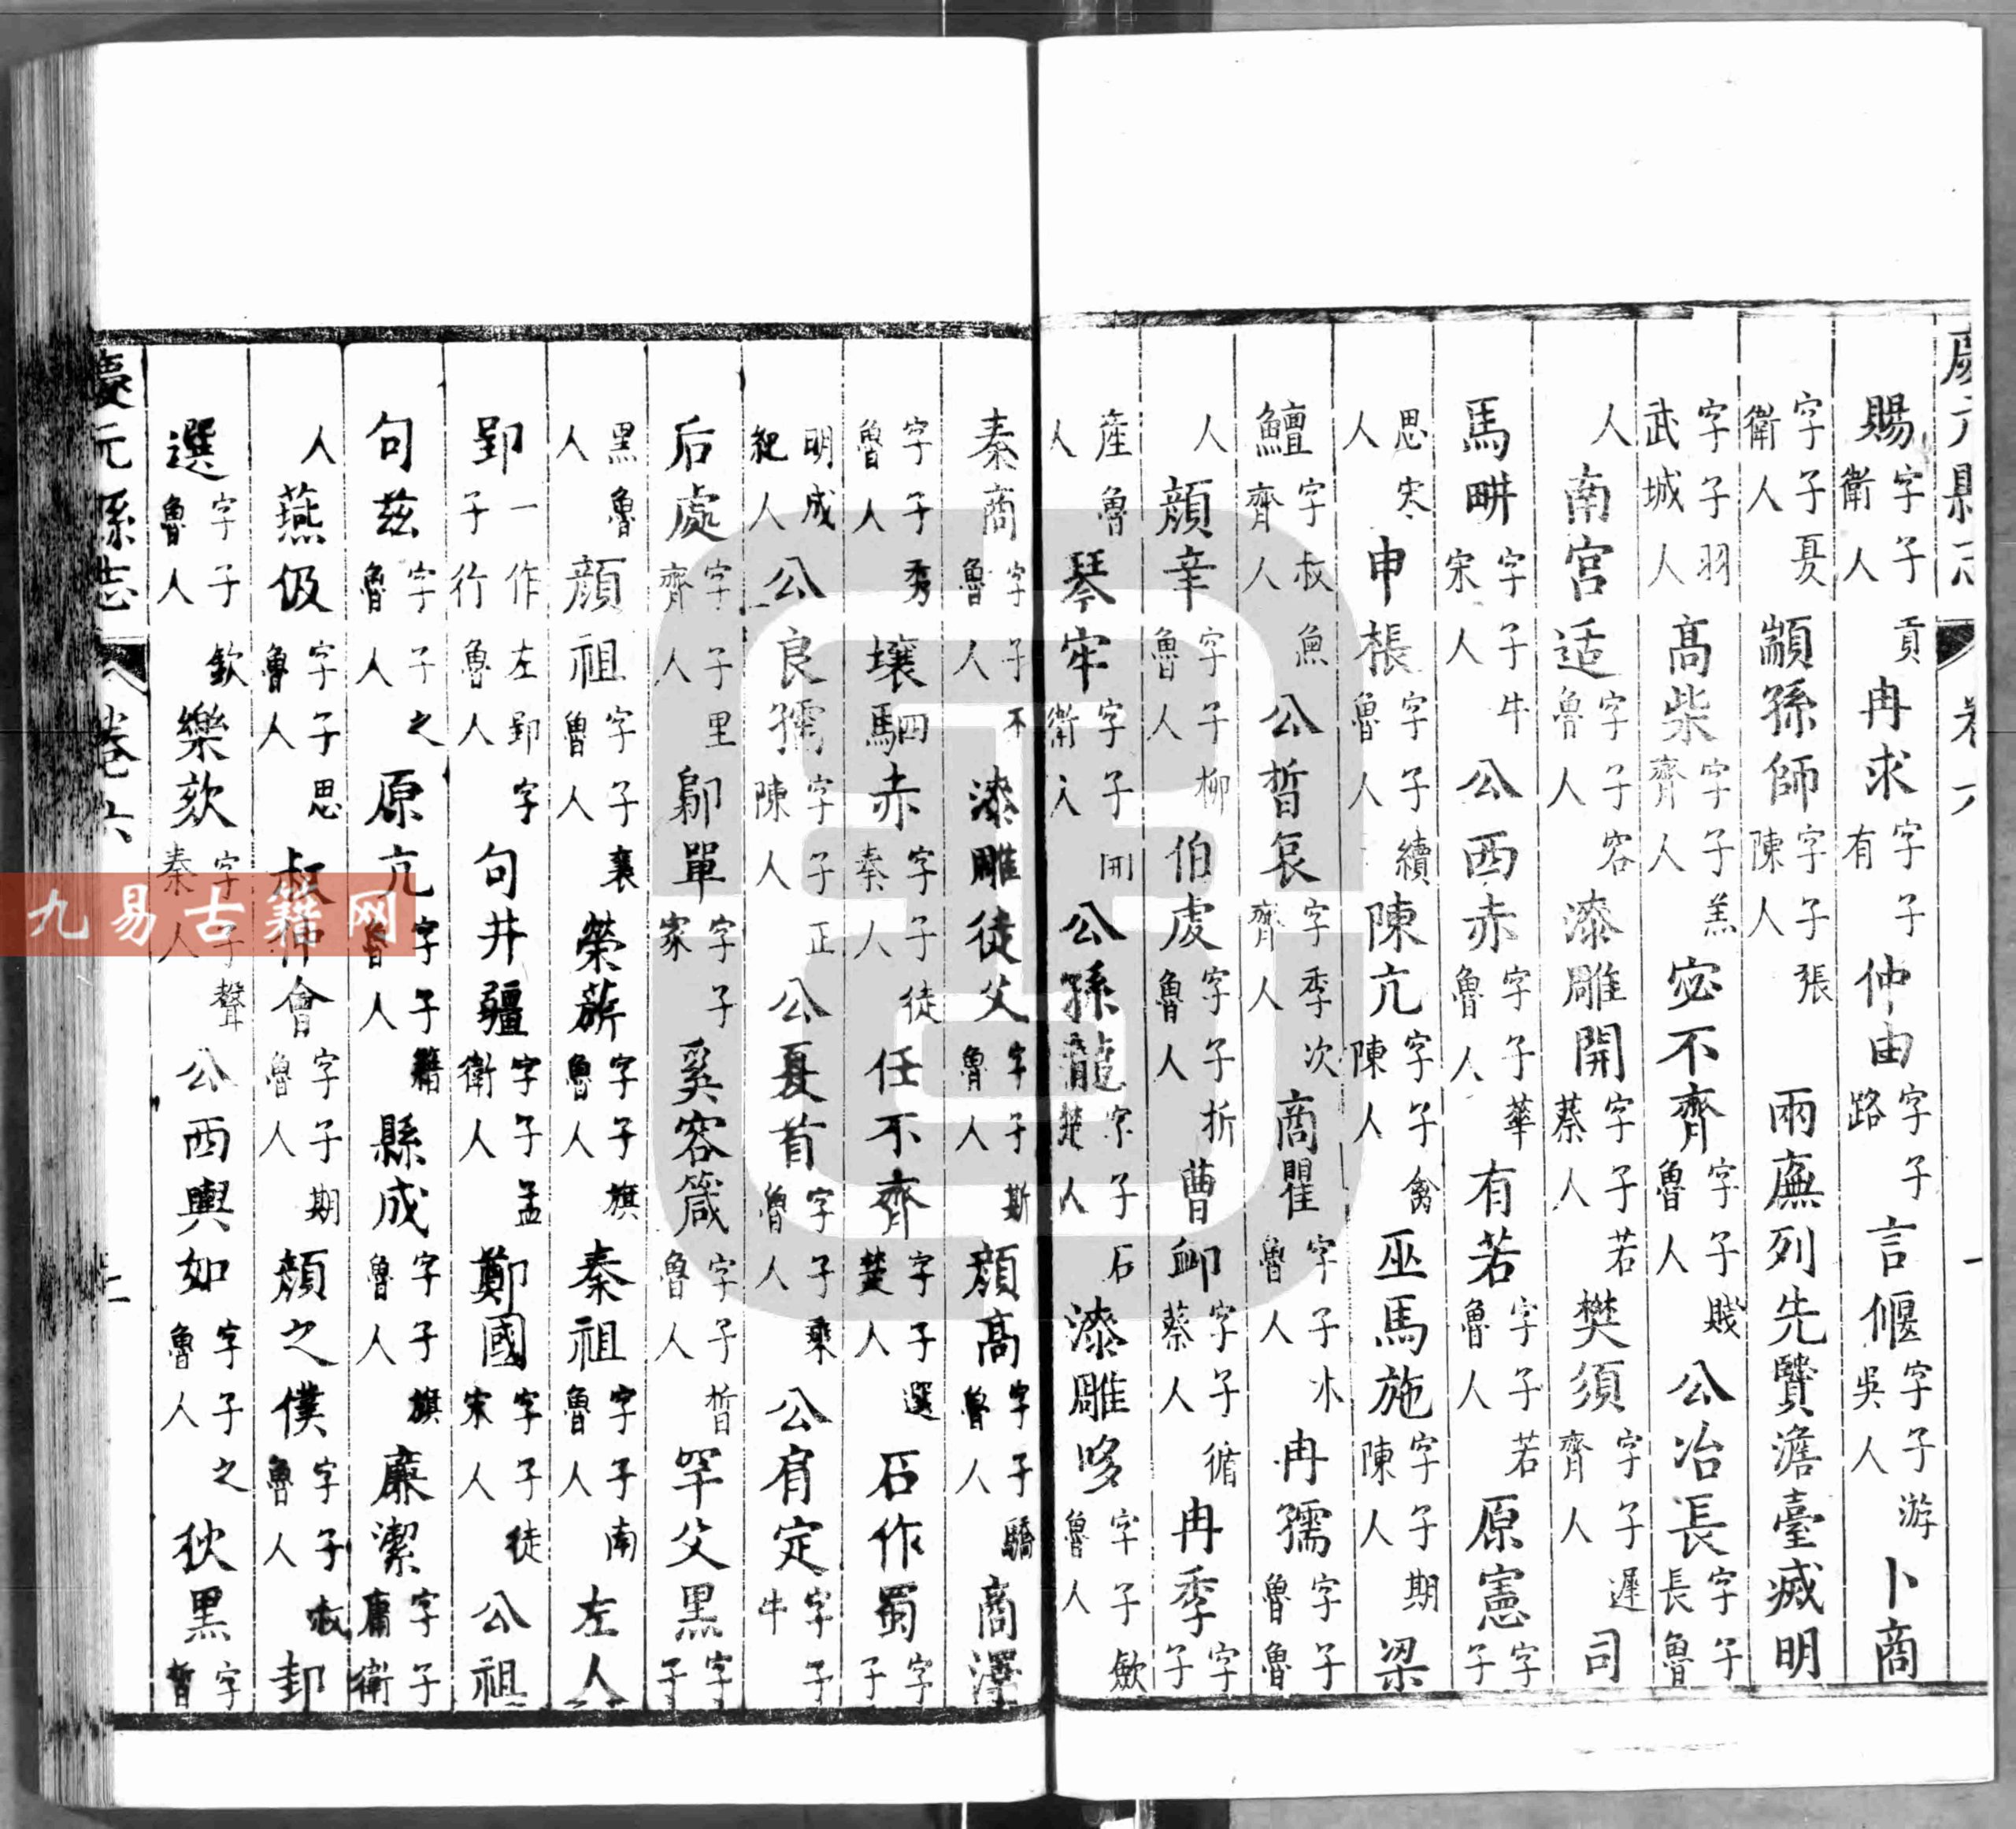 慶元縣志 卷六 一
賜字子貢衛人冉求字子有仲由字子路言偃字子游吳人卜商
字子夏衛人顓孫師字子張陳人 兩廡列先賢澹臺滅明
字子羽武城人高柴字子羔齊人宓不齊字子賤魯人公冶長字子長魯
人南宮适字子容魯人漆雕開字子若蔡人樊須字子遲齊人司
馬畊字子牛宋人公西赤字子華魯人有若字子若魯人原憲字子
思宋人申棖字子續魯人陳亢字子禽陳人巫馬施字子期陳人梁
鱣字叔魚齊人公晳哀字季次齊人商瞿字子木魯人冉孺字子魯魯
人顏辛字子柳魯人伯虔字子折魯人曹卹字子循蔡人冉季字子
產魯人琴牢字子開衛人公孫龍字子石楚人漆雕哆字子歛魯人
秦商字子不魯人漆雕徒父字子斯魯人顏高字子驕魯人商澤
字子秀魯人壤駟赤字子徒秦人任不齊字子選楚人石作蜀字子
明成紀人公良孺字子正陳人公夏首字子乘魯人公肩定字子牛
后處字子里齊人鄡單字子家奚容箴字子晳魯人罕父黑字子
黑魯人顏祖字子襄魯人榮旂字子旗魯人秦祖字子南魯人左人
郢一作左郢字子行魯人句井疆字子孟衛人鄭國字子徒宋人公祖
句茲字子之魯人原亢字子籍魯人縣成字子旗魯人廉潔字子庸衛
人燕伋字子思魯人叔仲會字子期魯人顏之僕字子叔魯人邽
選字子欽魯人樂欬字子聲秦人公西輿如字子之魯人狄黑字晳
慶元縣志 卷六 二
九易古籍网